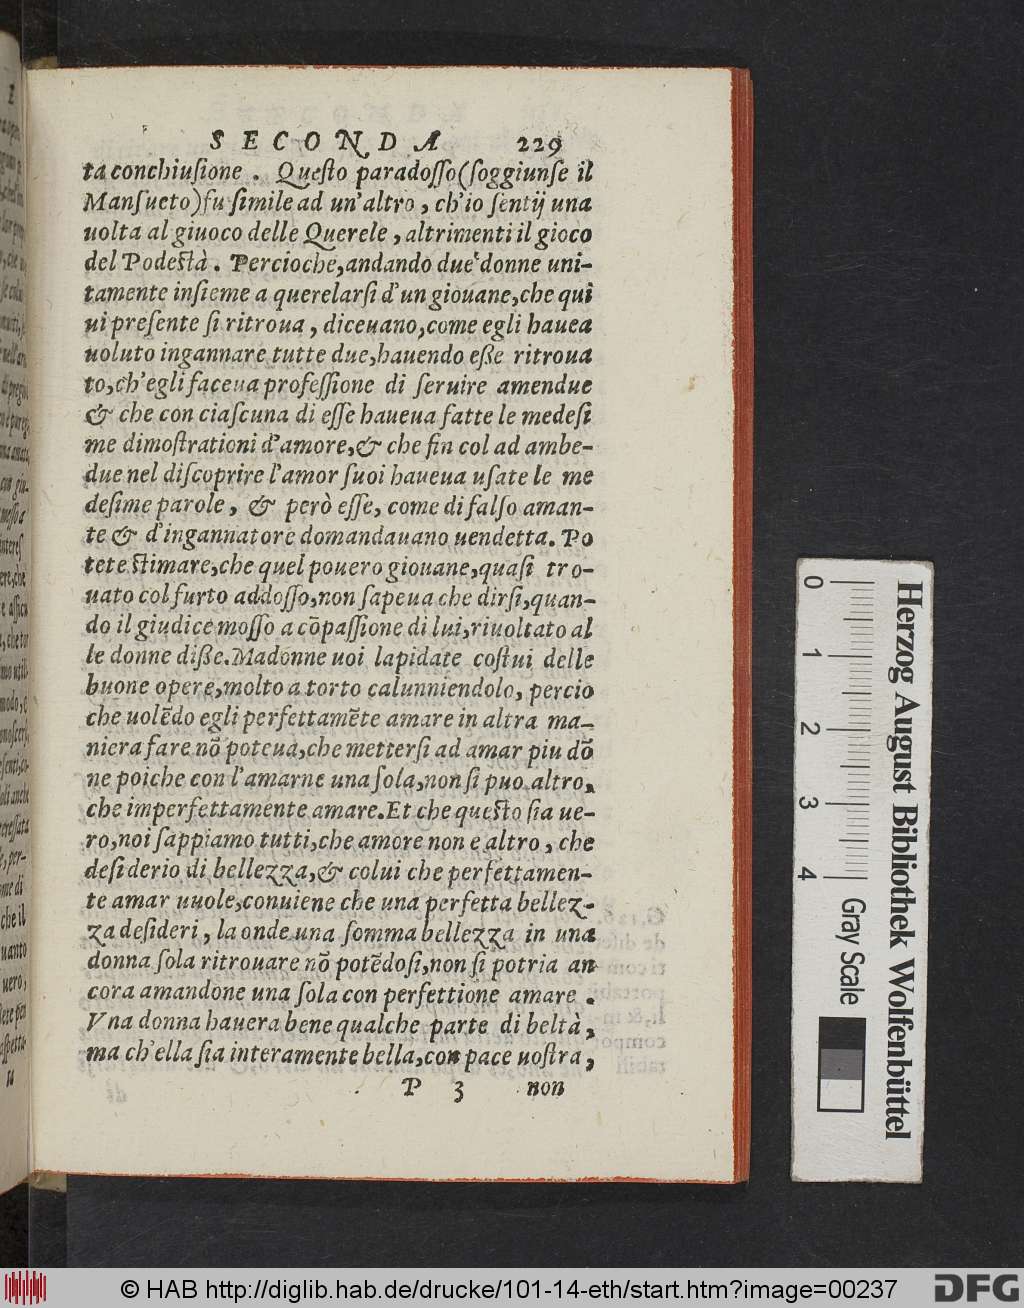 SECONDA 229
ta conchiuſione . Queſto paradoſſo (ſoggiunſe il
Manſueto) fu ſimile ad un'altro, ch'io ſentij una
uolta al giuoco delle Querele, altrimenti il gioco
del Podeſtà. Percioche, andando due donne uni-
tamente inſieme a querelarſi d'un giouane, che qui
ui preſente ſi ritroua, diceuano, come egli hauea
uoluto ingannare tutte due, hauendo eße ritroua
to, ch'egli faceua profeſſione di ſeruire amendue
& che con ciaſcuna di eſſe haueua fatte le medeſi
me dimoſtrationi d'amore, & che fin col ad ambe-
due nel diſcoprire l'amor ſuoi haueua uſate le me
deſime parole, & però eſſe, come di falſo aman-
te & d'ingannatore domandauano uendetta. Po
tete ſtimare, che quel pouero giouane, quaſi tro-
uato col furto addoſſo, non ſapeua che dirſi, quan-
do il giudice moſſo a cõpaſſione di lui, riuoltato al
le donne diße. Madonne uoi lapidate coſtui delle
buone opere, molto a torto calunniendolo, percio
che uolẽdo egli perfettamẽte amare in altra ma-
niera fare nõ poteua, che metterſi ad amar piu dõ
ne poiche con l'amarne una ſola, non ſi puo altro,
che imperfettamente amare. Et che queſto ſia ue-
ro, noi ſappiamo tutti, che amore non e altro, che
deſiderio di bellezza, & colui che perfettamen-
te amar uuole, conuiene che una perfetta bellez-
za deſideri, la onde una ſomma bellezza in una
donna ſola ritrouare nõ potẽdoſi, non ſi potria an
cora amandone una ſola con perfettione amare .
Vna donna hauera bene qualche parte di beltà,
ma ch'ella ſia interamente bella, con pace uoſtra,
P 3 non
0 1 2 3 4
Gray Scale
Herzog August Bibliothek Wolfenbüttel
© HAB http://diglib.hab.de/drucke/101-14-eth/start.htm?image=00237
DFG